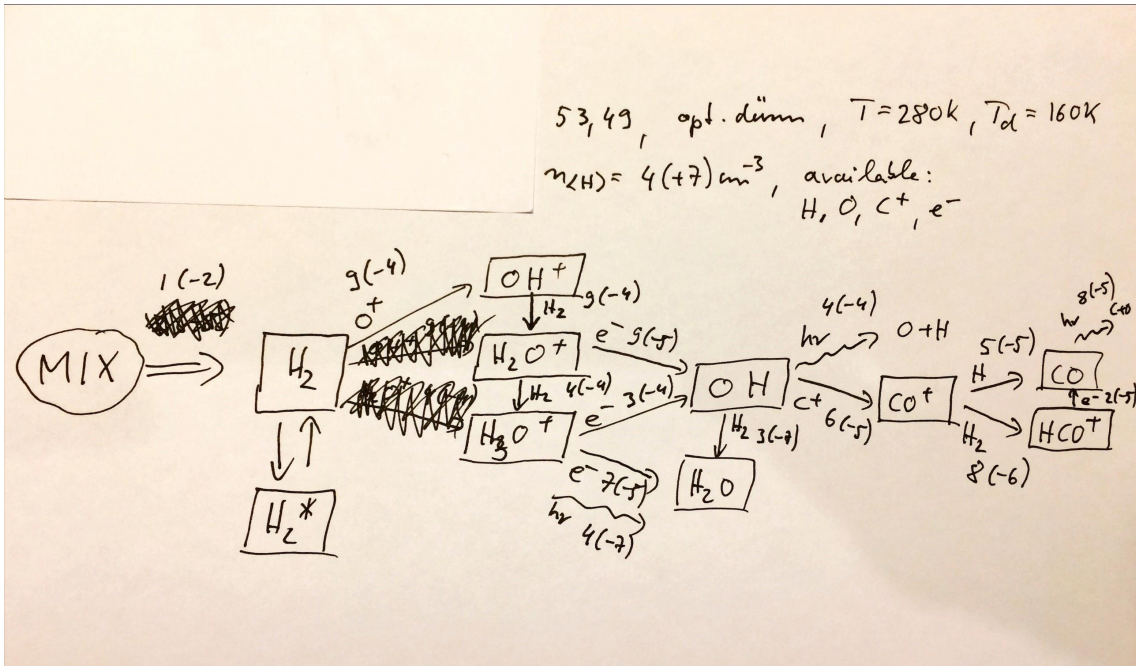 53,49, opt. dünn, T=280K, T_d = 160K
n⟨H⟩ = 4(+7) cm^-3, available:
H, O, C^+, e^-
1(-2)
MIX
H_2
H_2*
9(-4)
O^+
OH^+
H_2 9(-4)
H_2O^+
H_2 4(-4)
H_3O^+
e^- 9(-5)
e^- 3(-4)
e^- 7(-5)
hν
4(-7)
OH
H_2 3(-7)
H_2O
4(-4)
hν
O+H
C^+ 6(-5)
CO^+
5(-5)
H
H_2
8(-6)
8(-5)
hν
CO
e^- 2(-5)
HCO^+